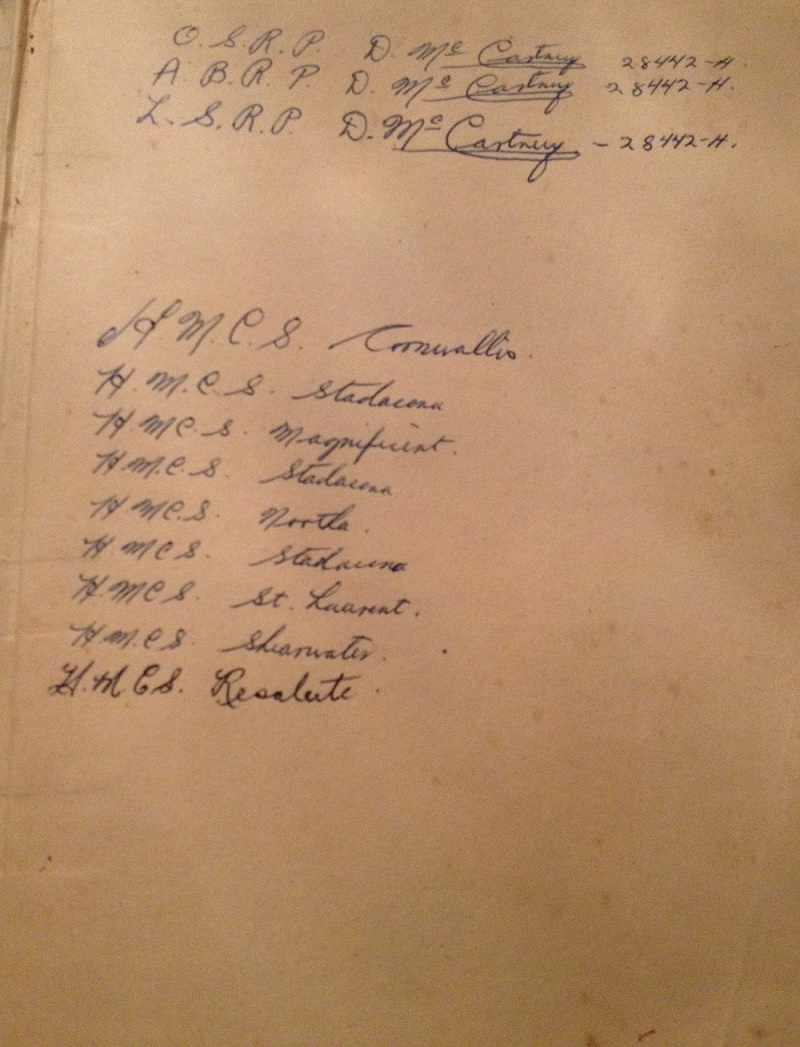 O. S. R. P. D. Mc Cartney 28442-H.
A. B. R. P. D. Mc Cartney 28442-H.
L. S. R. P. D. Mc Cartney - 28442-H.
H. M. C. S. Cornwallis.
H. M. C. S. Stadacona
H. M C. S. Magnificent.
H. M. C. S. Stadacona
H M C. S. Noortla.
H M C S. Stadacona
H M C S. St. Laurent.
H. M. C. S. Shearwater.
H. M C S. Resolute.